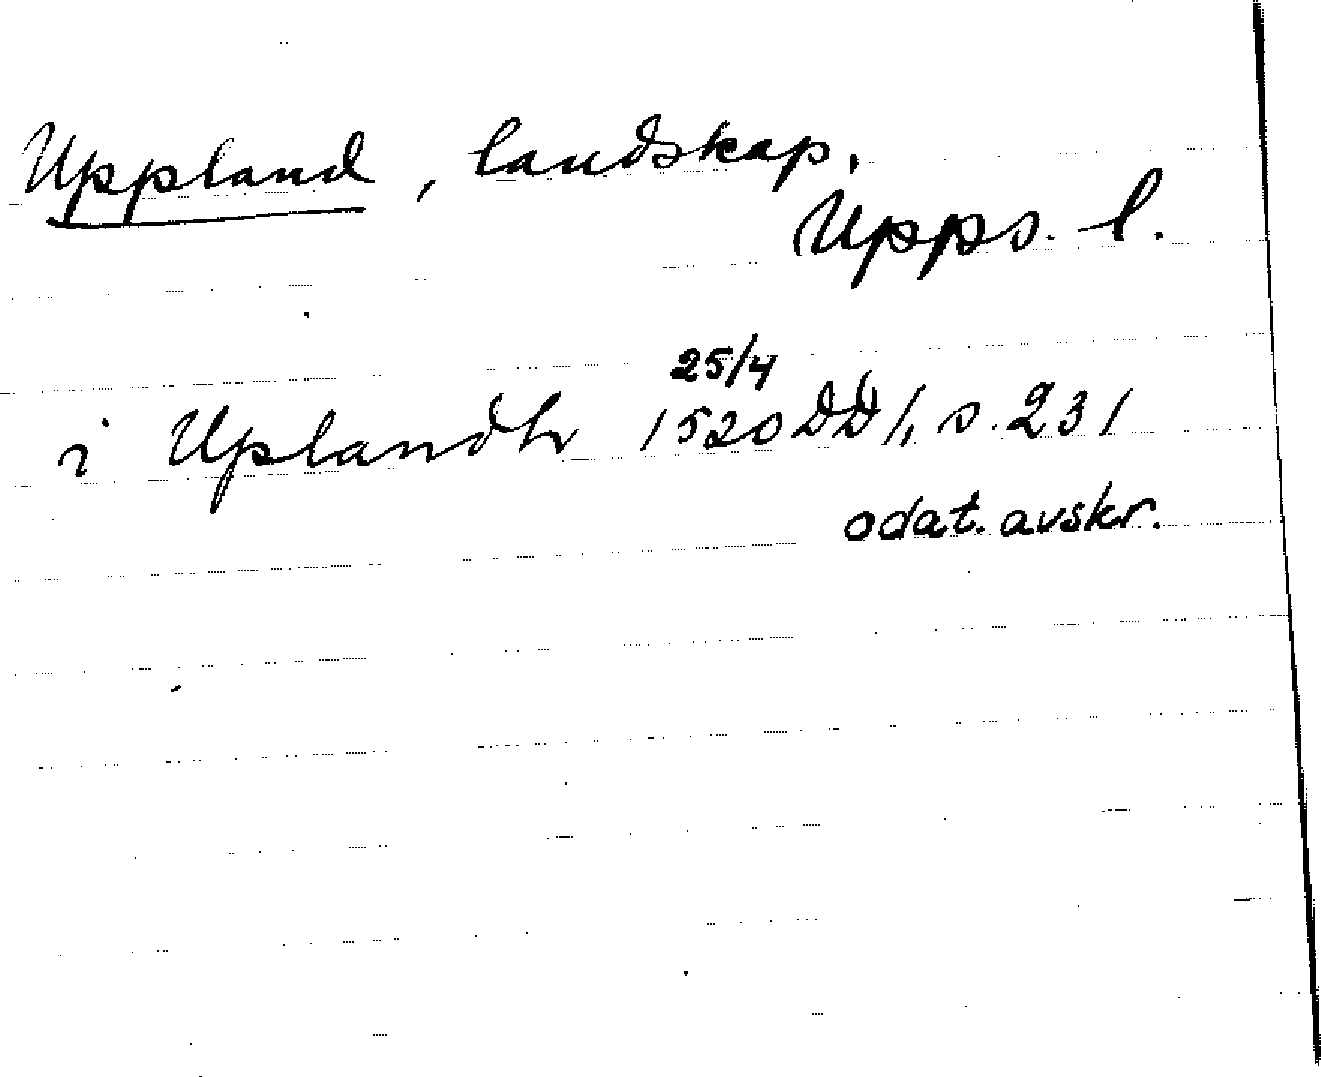 Uppland, landskap.
Upps. l.
25/4
i Uplandh 1520 DD 1, s. 231
odat. avskr.